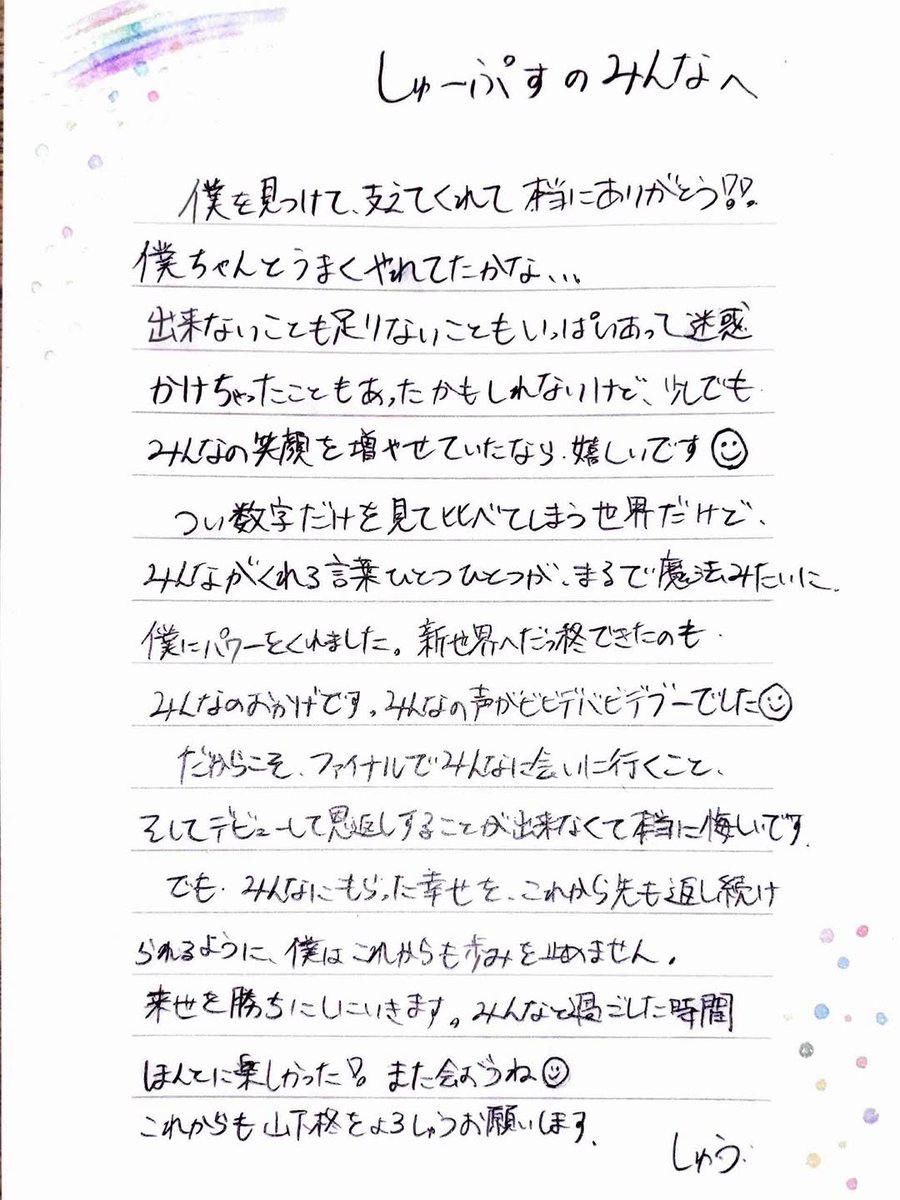 しゅーぷすのみんなへ
僕を見つけて、支えてくれて本当にありがとう!!
僕ちゃんとうまくやれてたかな、、、
出来ないことも足りないこともいっぱいあって迷惑
かけちゃったこともあったかもしれないけど、少しでも
みんなの笑顔を増やせていたなら嬉しいです☺
つい数字だけを見て比べてしまう世界だけど、
みんながくれる言葉ひとつひとつが、まるで魔法みたいに
僕にパワーをくれました。新世界へだっ柊できたのも
みんなのおかげです。みんなの声がビビデバビデブーでした☺
だからこそ、ファイナルでみんなに会いに行くこと、
そしてデビューして恩返しすることが出来なくて本当に悔しいです
でも、みんなにもらった幸せを、これから先も返し続け
られるように、僕はこれからも歩みを止めません。
来世を勝ちにしにいきます。みんなと過ごした時間
ほんとに楽しかった! また会おうね☺
これからも山下柊をよろしゅうお願いします。
しゅう